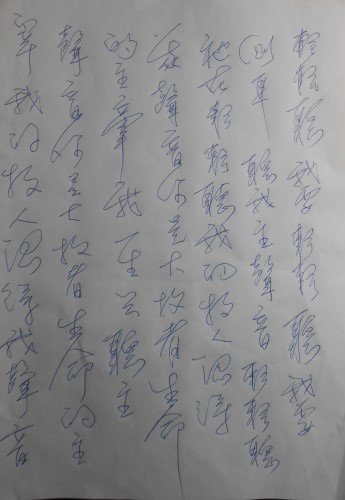 輕輕聽我要輕輕聽我要
側耳聽我主聲音輕輕聽
祂在輕輕聽我的牧人認得
我聲音你是大牧者生命
的主宰我一生只聽主
聲音你是大牧者生命的主
宰我的牧人認得我聲音